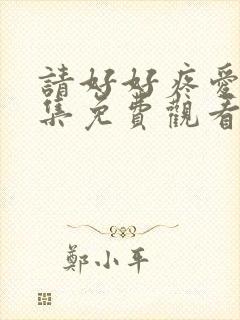 請好好疼愛
集免費觀看
鄭小平